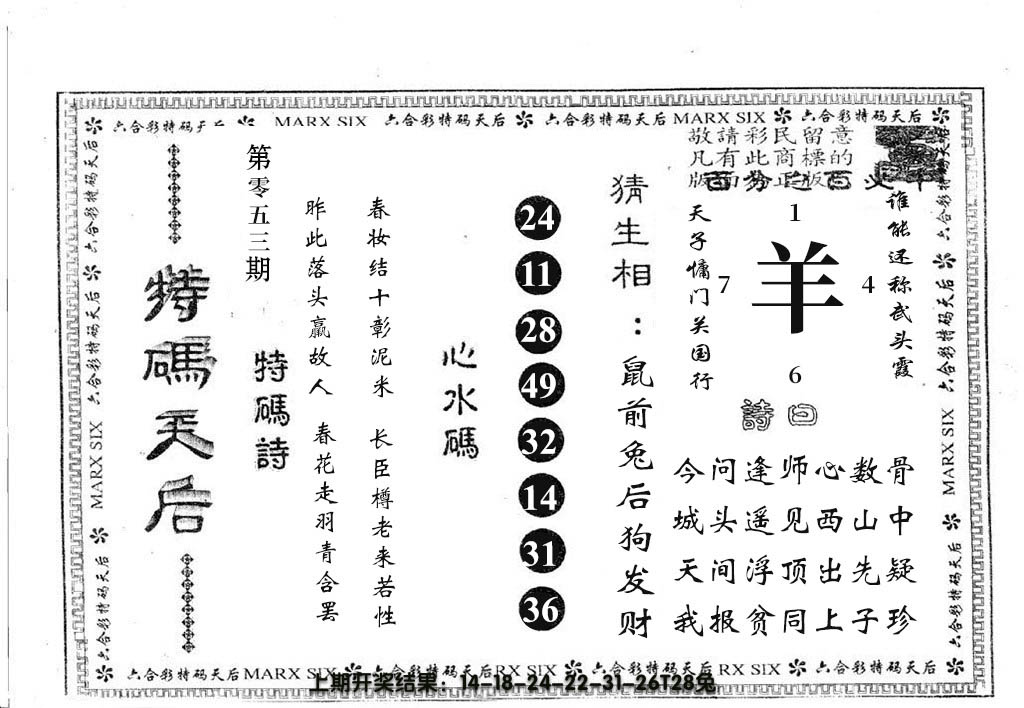 六合彩特码天后
MARX SIX
六合彩特码天后
六合彩特码天后
MARX SIX
六合彩特码天后
敬請彩民留意
凡有此商標的
猜生相：鼠前兔后狗发财
天子慵门关国行
谁能还称武头霞
1
7
羊
4
6
詩曰
今问逢师心数骨
城头遥见西山中
天间浮顶出先疑
我报贫同上子珍
心水碼
24
11
28
49
32
14
31
36
春妆结十彰泥米
长臣樽老来若性
昨此落头赢故人
春花走羽青含罢
特碼詩
第零五三期
特碼天后
六合彩特码天后
MARX SIX
六合彩特码天后
六合彩特码天后
六合彩特码天后
MARX SIX
六合彩特码天后
六合彩特码天后
MARX SIX
六合彩特码天后
RX SIX
六合彩特码天后
RX SIX
六合彩特码天后
上期开奖结果：14-18-24-22-31-26T28兔